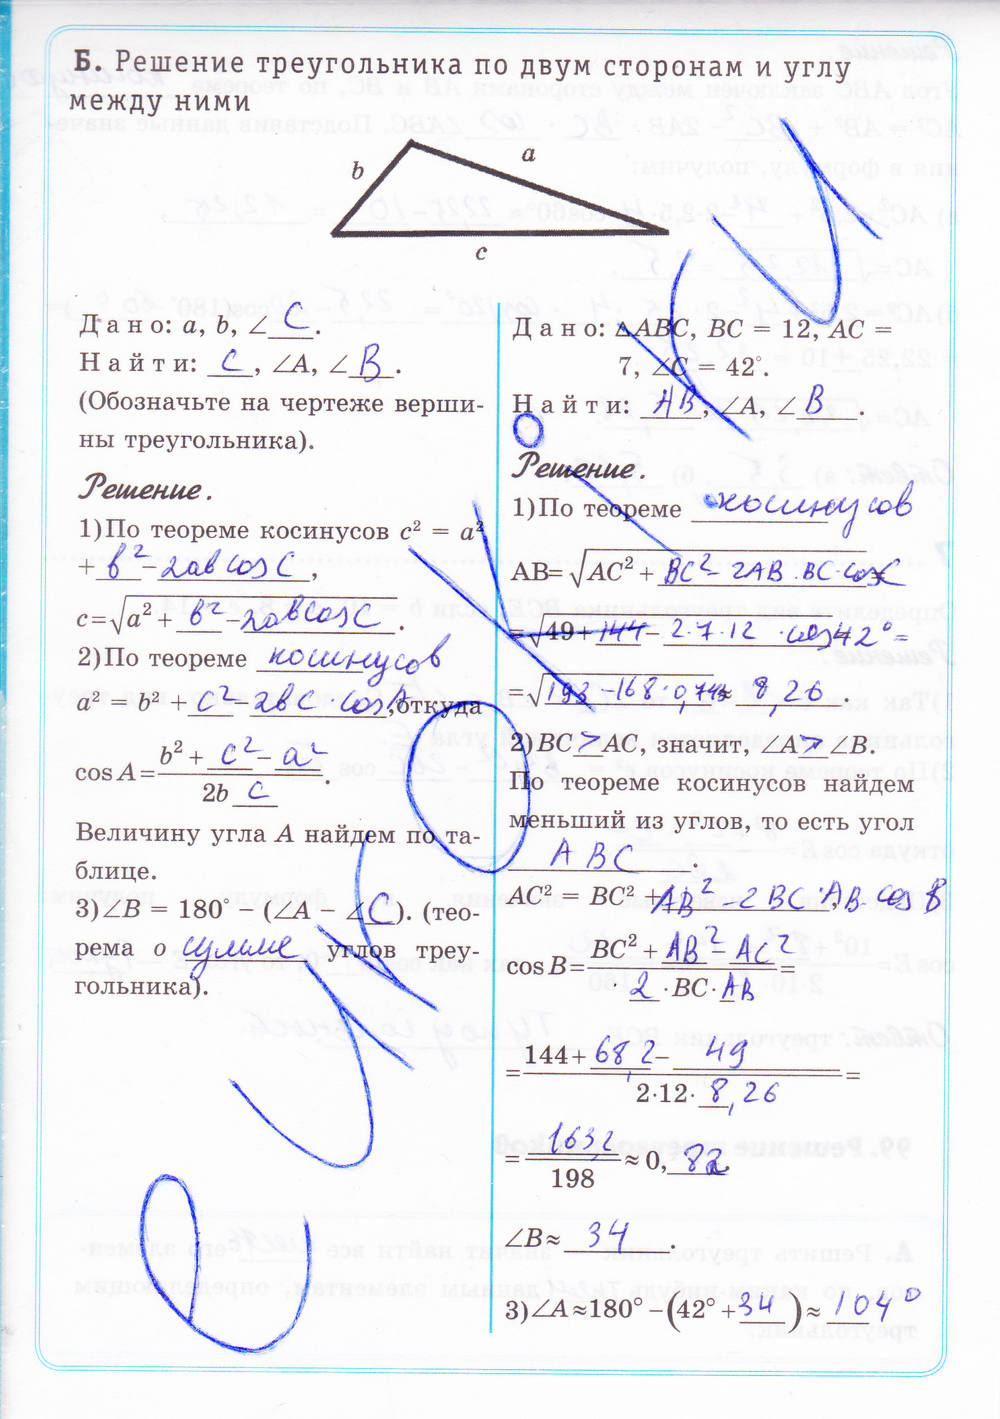 Б. Решение треугольника по двум сторонам и углу
между ними
b
a
c
Дано: a, b, ∠ C.
Найти: c, ∠A, ∠ B.
(Обозначьте на чертеже верши-
ны треугольника).
Решение.
1) По теореме косинусов c² = a²
+ b² - 2ab cos C,
c = √a² + b² - 2ab cos C.
2) По теореме косинусов
a² = b² + c² - 2bc cos A, откуда
cos A = (b² + c² - a²) / (2b c).
Величину угла A найдем по та-
блице.
3) ∠B = 180° − (∠A − ∠C). (тео-
рема о сумме углов треу-
гольника).
Дано: △ABC, BC = 12, AC =
7, ∠C = 42°.
Найти: AB, ∠A, ∠ B.
Решение.
1) По теореме косинусов
AB = √AC² + BC² - 2AB · BC · cos C
= √49 + 144 - 2·7·12 · cos 42° =
= √193 - 168·0,743 ≈ 8,26.
2) BC > AC, значит, ∠A > ∠B.
По теореме косинусов найдем
меньший из углов, то есть угол
ABC.
AC² = BC² + AB² - 2BC · AB cos B
cos B = (BC² + AB² - AC²) / (2 · BC · AB) =
= (144 + 68,2 - 49) / (2·12·8,26) =
= 163,2 / 198 ≈ 0,82
∠B ≈ 34.
3) ∠A ≈ 180° − (42° + 34) ≈ 104°